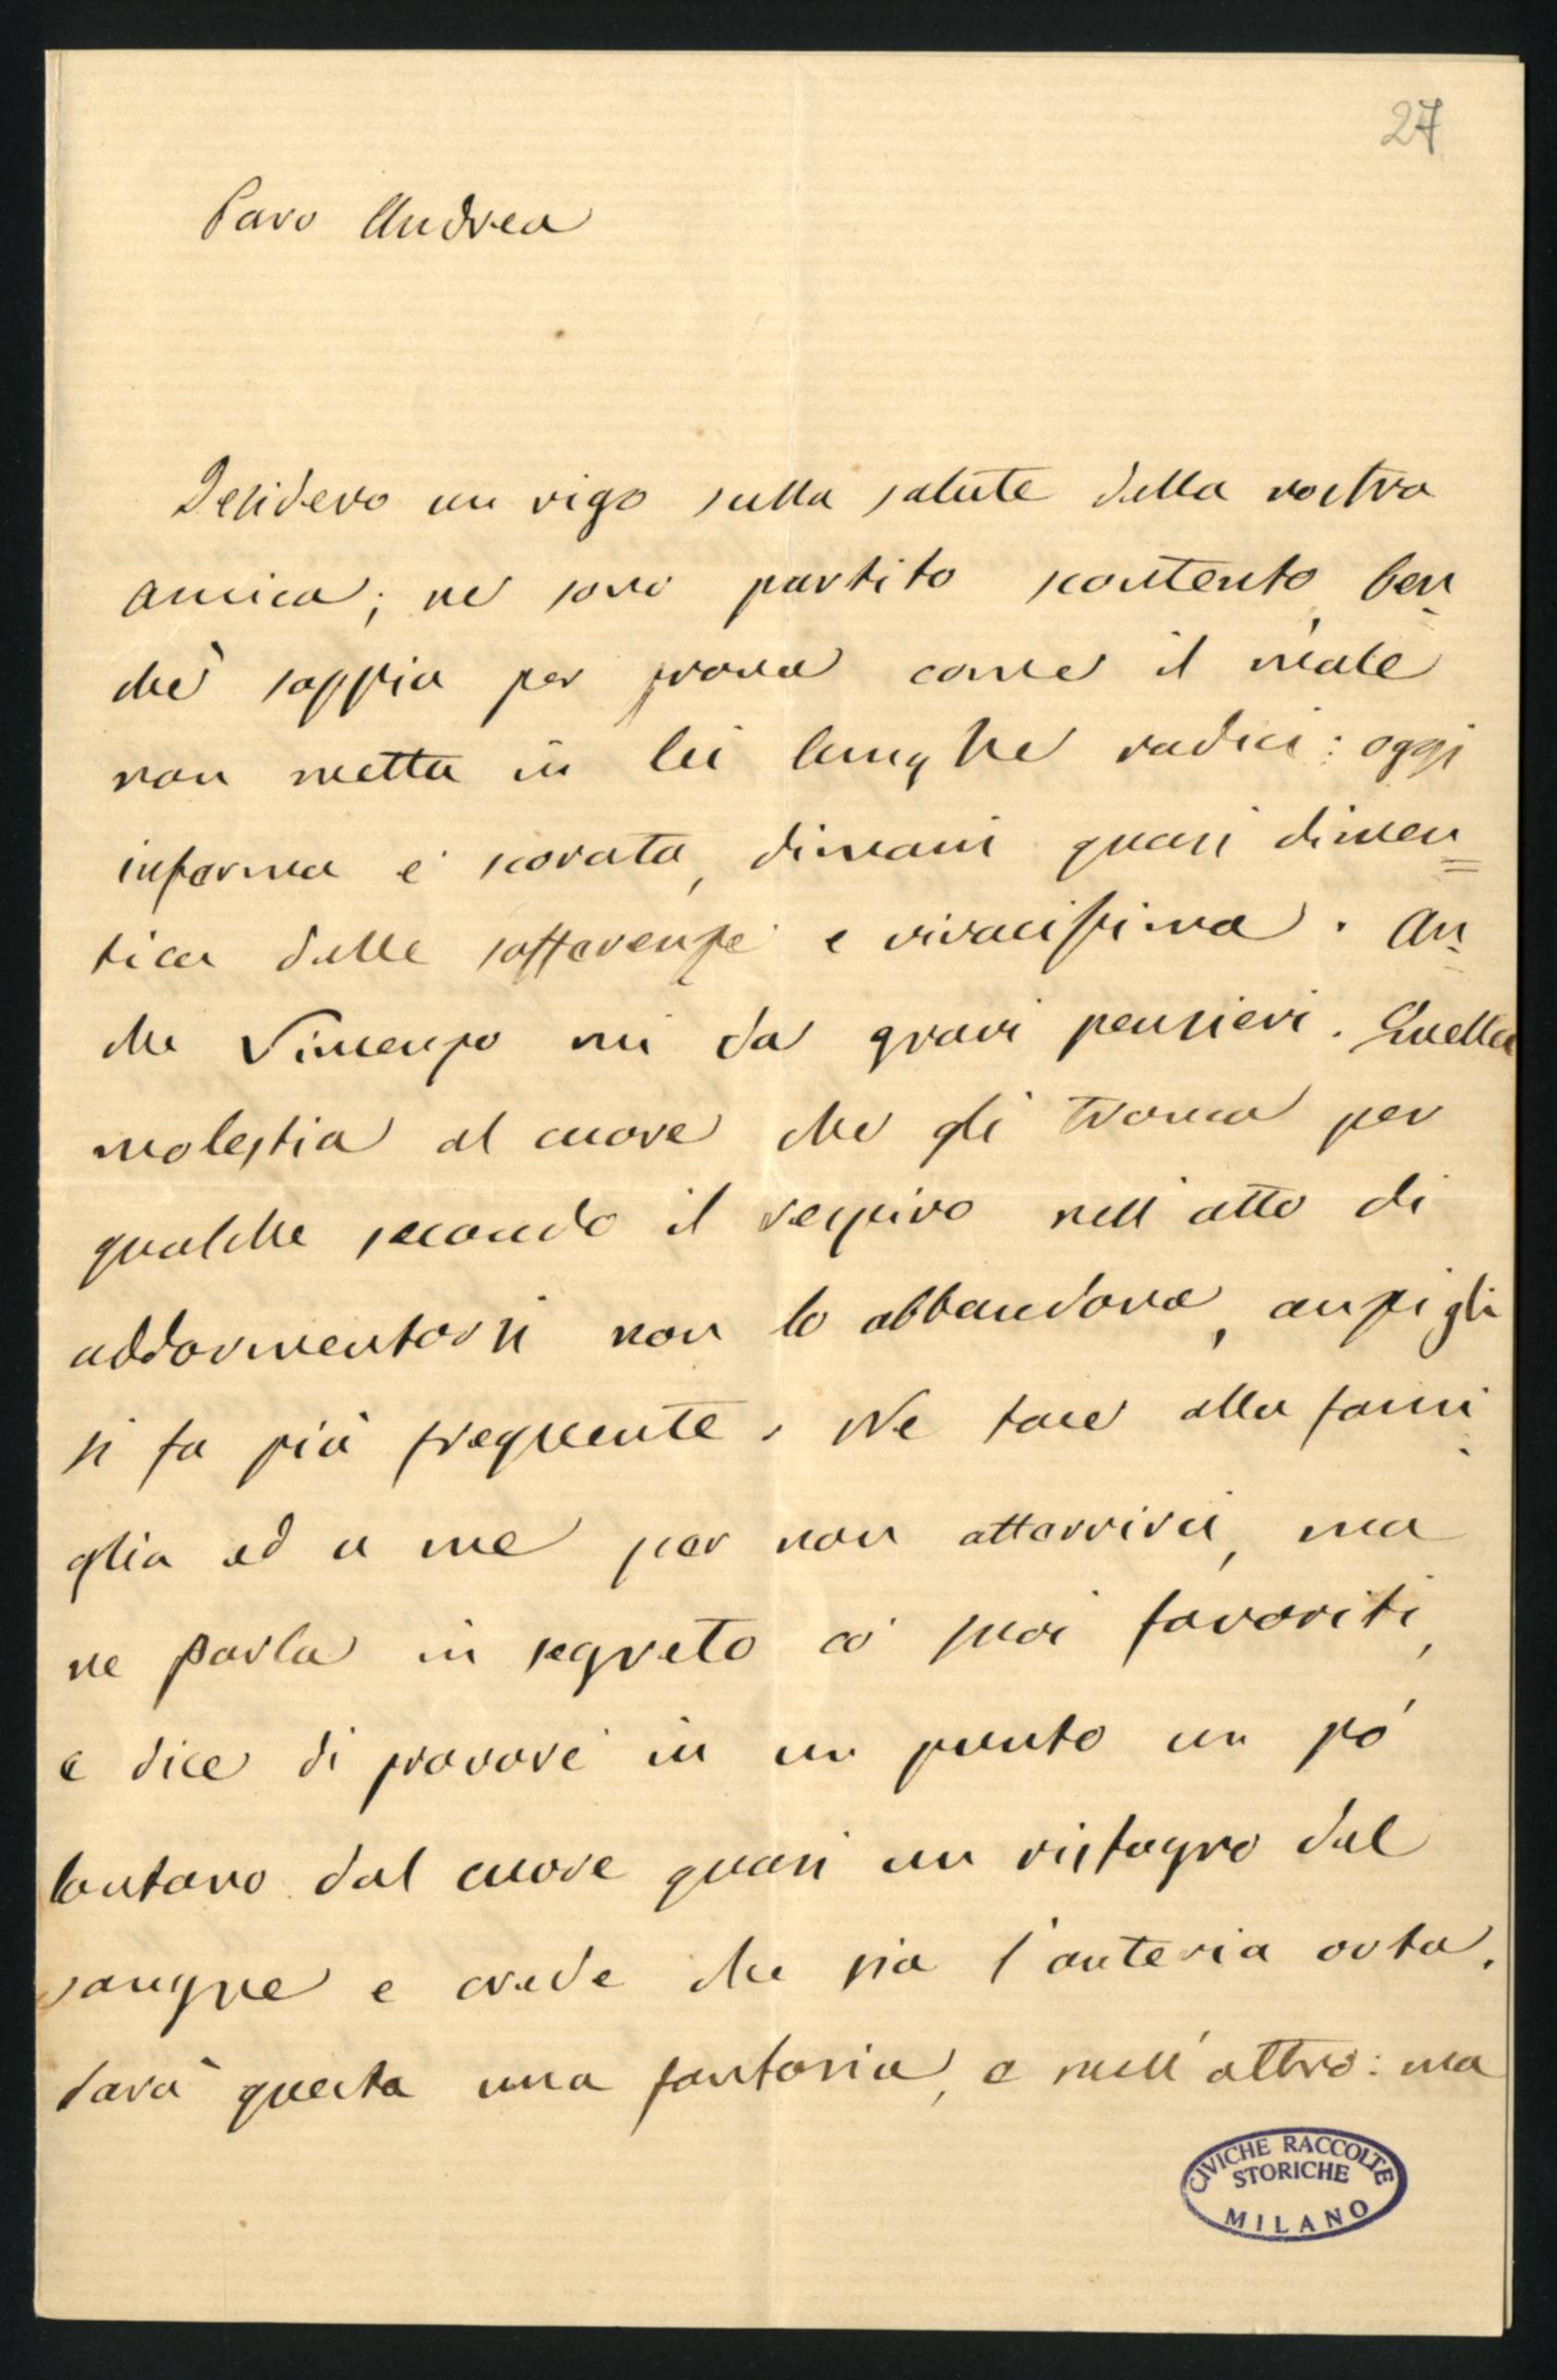 27
Caro Andrea
Desidero un rigo sulla salute della vostra
amica; ne sono partito scontento, ben-
chè sappia per prova come il male
non metta in lei lunghe radici: oggi
inferma e scorata, dimani quasi dimen=
tica delle sofferenze e vivacissima. An-
che Vincenzo mi da gravi pensieri. Quella
molestia al cuore che gli tronca per
qualche secondo il respiro nell'atto di
addormentarsi non lo abbandona, anzi gli
si fa più frequente. Ne tace alla fami-
glia ed a me per non atterrirci, ma
ne parla in segreto co' suoi favoriti,
e dice di provare in un punto un pò
lontano dal cuore quasi un ristagno del
sangue e crede che sia l'anteria orta.
Sarà questa una fantasia, e null'altro: ma
CIVICHE RACCOLTE
STORICHE
MILANO